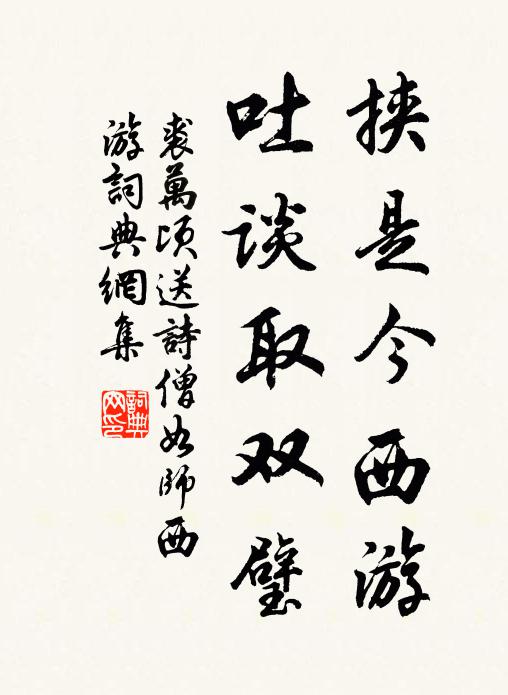 挟是今西游
吐谈取双璧
裘萬顷送詩僧如師西
游詞典網集
詞典网印